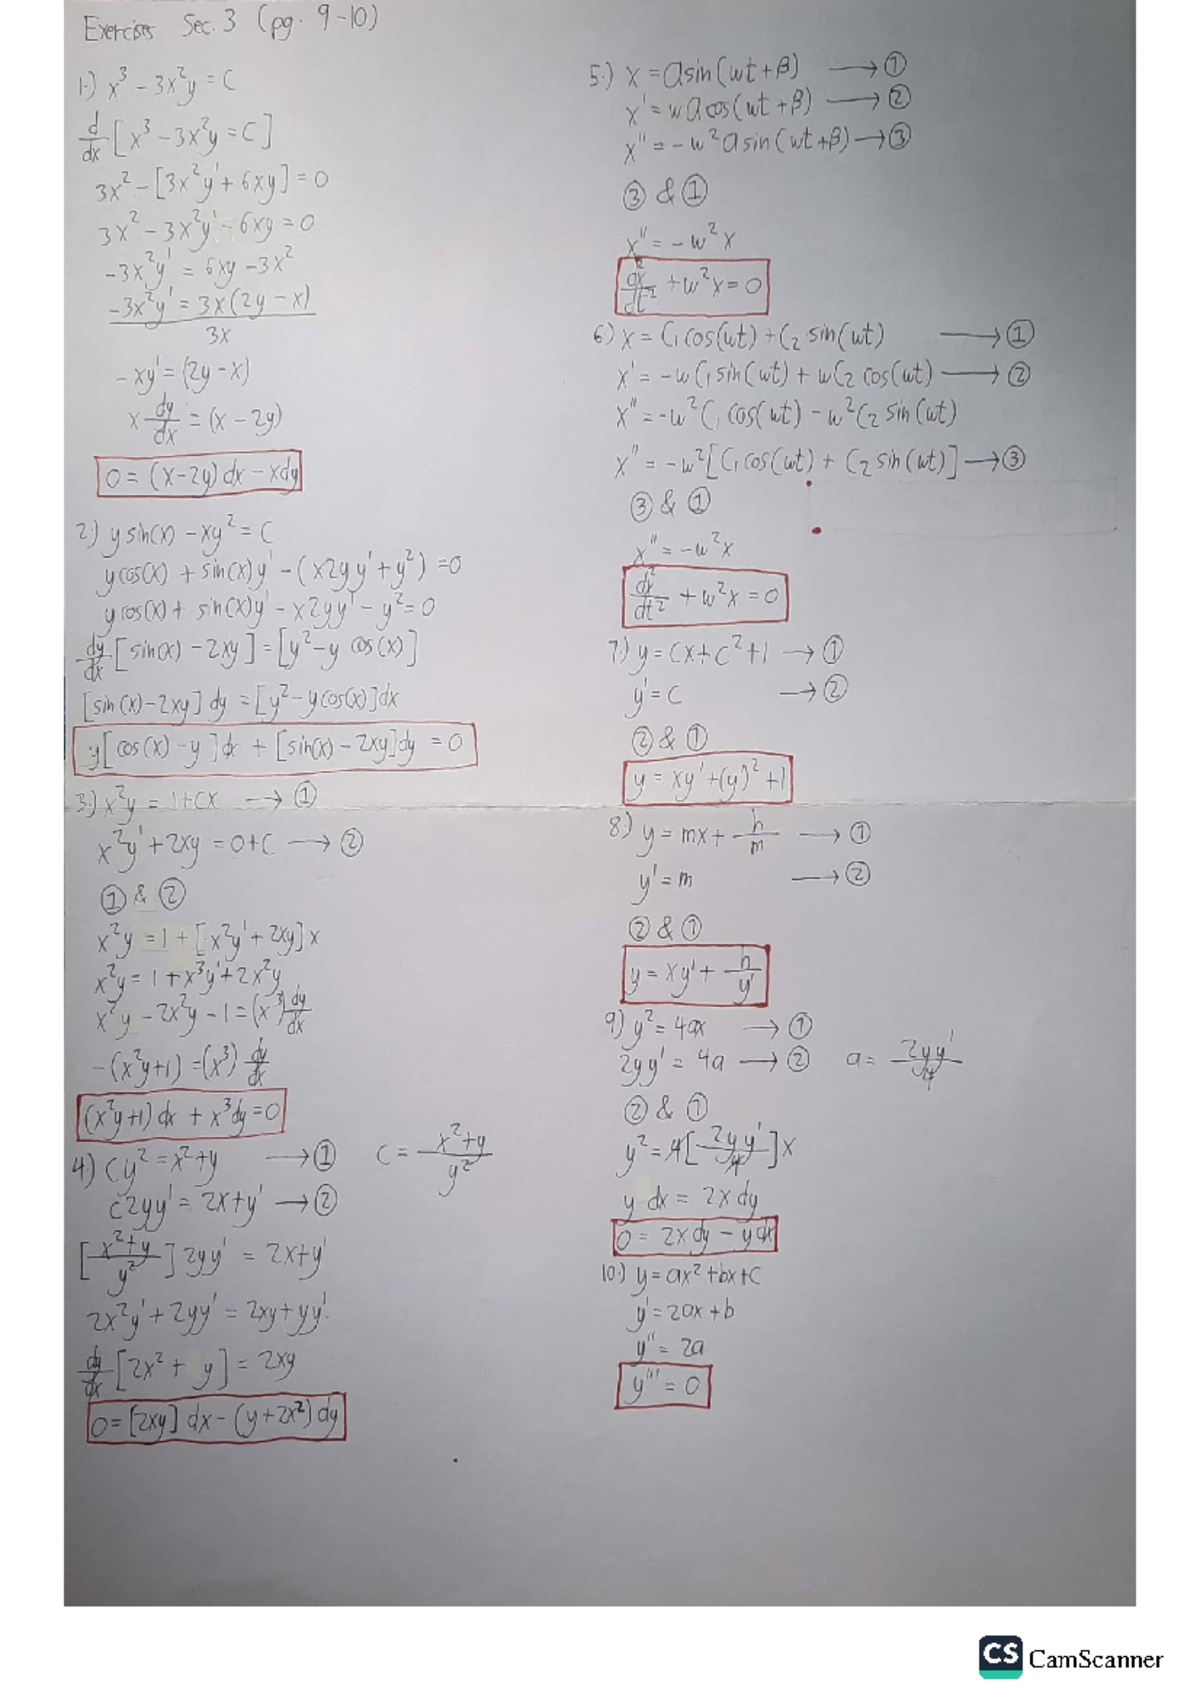 Exercises Sec. 3 (pg. 9-10)
1.) x³ - 3x²y = C
d/dx [x³ - 3x²y = C]
3x² - [3x²y' + 6xy] = 0
3x² - 3x²y' - 6xy = 0
-3x²y' = 6xy - 3x²
-3x²y' = 3x(2y - x)
3x
-xy' = (2y - x)
x dy/dx = (x - 2y)
0 = (x-2y)dx - xdy
2.) y sin(x) - xy² = C
ycos(x) + sin(x)y' - (x2yy' + y²) = 0
ycos(x) + sin(x)y' - x2yy' - y² = 0
dy/dx [sin(x) - 2xy] = [y² - y cos(x)]
[sin(x) - 2xy]dy = [y² - ycos(x)]dx
y[cos(x) - y]dx + [sin(x) - 2xy]dy = 0
3.) x²y = 1 + cx → ①
x²y' + 2xy = 0 + C → ②
① & ②
x²y = 1 + [x²y' + 2xy]x
x²y = 1 + x³y' + 2x²y
x²y - 2x²y - 1 = (x³)dy/dx
-(x²y+1) = (x³) dy/dx
(x²y+1)dx + x³dy = 0
4.) Cy² = x² + y → ① C = x²+y/y²
C2yy' = 2x + y' → ②
[x²+y/y²] 2yy' = 2x + y'
2x²y' + 2yy' = 2xy + yy'
dy/dx [2x² + y] = 2xy
0 = [2xy]dx - (y + 2x²)dy
5.) x = asin(wt + β) → ①
x' = wacos(wt + β) → ②
x'' = -w²asin(wt + β) → ③
③ & ①
x'' = -w²x
d²x/dt² + w²x = 0
6.) x = C₁cos(wt) + C₂sin(wt) → ①
x' = -wC₁sin(wt) + wC₂cos(wt) → ②
x'' = -w²C₁cos(wt) - w²C₂sin(wt)
x'' = -w²[C₁cos(wt) + C₂sin(wt)] → ③
③ & ①
x'' = -w²x
d²x/dt² + w²x = 0
7.) y = cx + c² + 1 → ①
y' = c → ②
② & ①
y = xy' + (y')² + 1
8.) y = mx + h/m → ①
y' = m → ②
② & ①
y = xy' + h/y'
9.) y² = 4ax → ①
2yy' = 4a → ② a = 2yy'/4
② & ①
y² = 4[2yy'/4]x
y dx = 2xdy
0 = 2xdy - ydx
10.) y = ax² + bx + c
y' = 2ax + b
y'' = 2a
y''' = 0
CS CamScanner